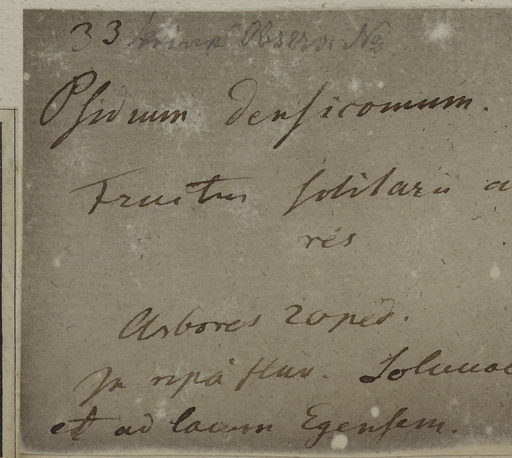 33. Observ. No
Psidium densicomum.
Fructus solitarii a
res
Arbores 20 ped.
In ripâ fluv. Solimoe
et ad lacum Egensem.